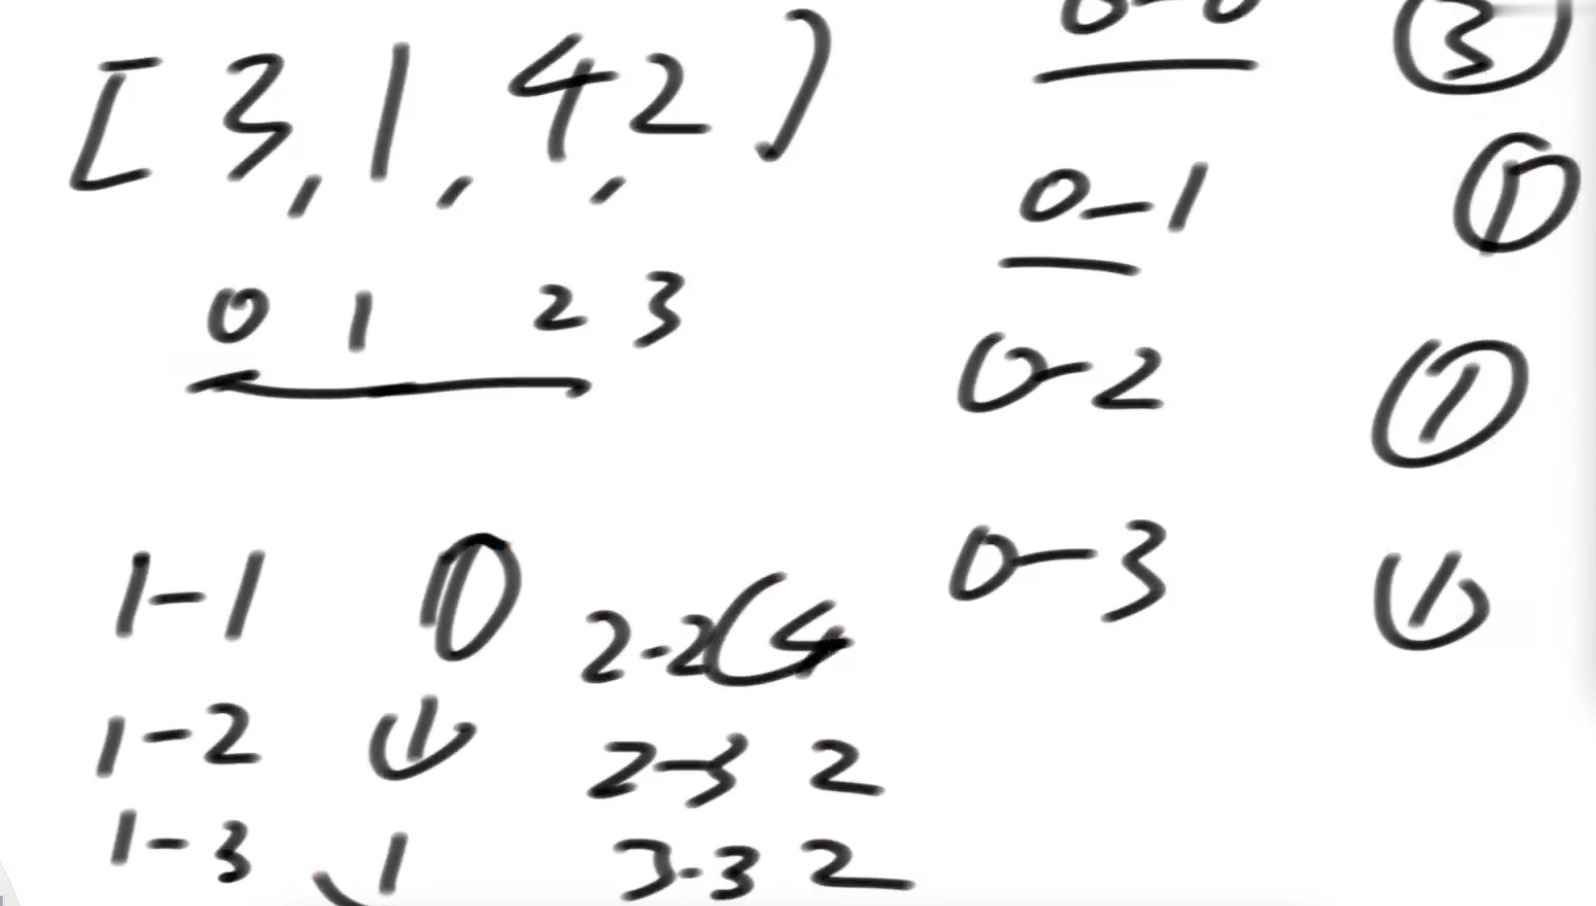 [3, 1, 4, 2]
0 1 2 3
0-0 3
0-1 1
0-2 1
0-3 1
1-1 1
1-2 1
1-3 1
2-2 4
2-3 2
3-3 2